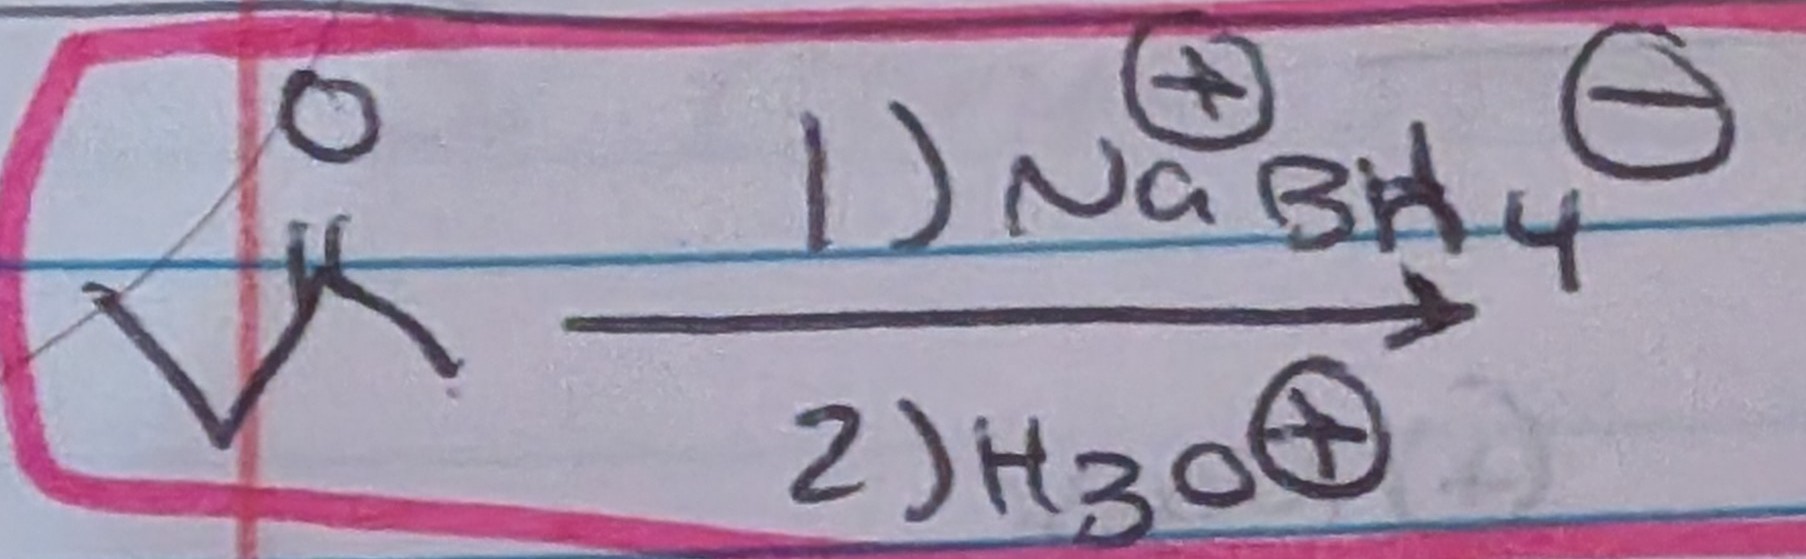 O
1) Na⊕BH4⊖
2) H3O⊕